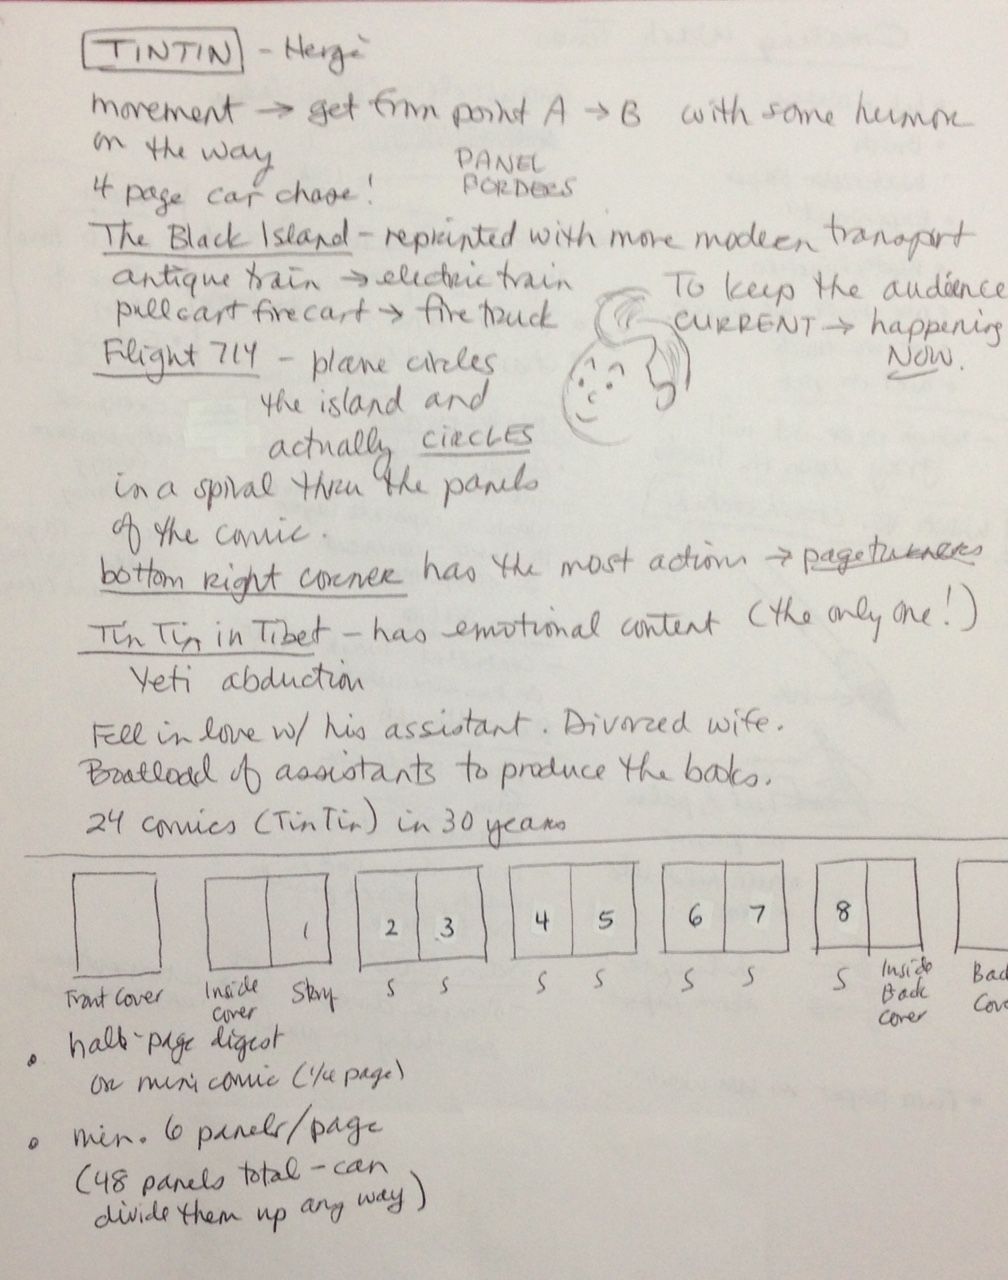 TINTIN - Hergè
movement → get from point A → B with some humor
on the way
PANEL
BORDERS
4 page car chase!
The Black Island - reprinted with more modern transport
antique train → electric train
pull cart fire cart → fire truck
To keep the audience
CURRENT → happening
NOW.
Flight 714 - plane circles
the island and
actually CIRCLES
in a spiral thru the panels
of the comic.
bottom right corner has the most action → pageturners
TinTin in Tibet - has emotional content (the only one!)
Yeti abduction
Fell in love w/ his assistant. Divorced wife.
Boatload of assistants to produce the books.
24 comics (TinTin) in 30 years
1 2 3 4 5 6 7 8
Front Cover Inside Cover Story S S S S S S S Inside Back Cover Bac Cov
• half-page digest
or mini comic (1/4 page)
• min. 6 panels/page
(48 panels total - can
divide them up any way)